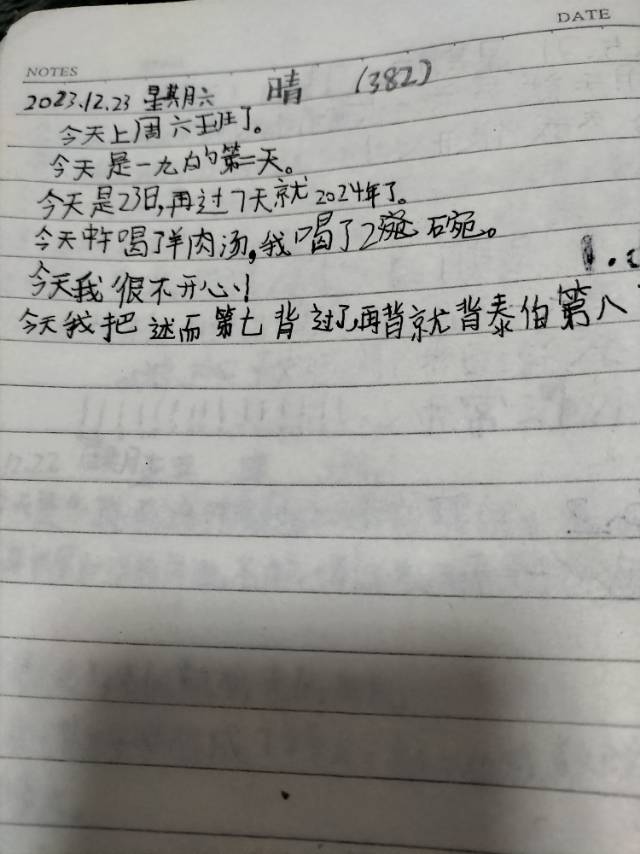 DATE
NOTES
2023.12.23 星期六 晴 (382)
今天上周六班了。
今天是一九的第二天。
今天是23日,再过7天就2024年了。
今天中午喝了羊肉汤,我喝了2碗
今天我很不开心!
今天我把述而第七背过了,再背就背泰伯第八